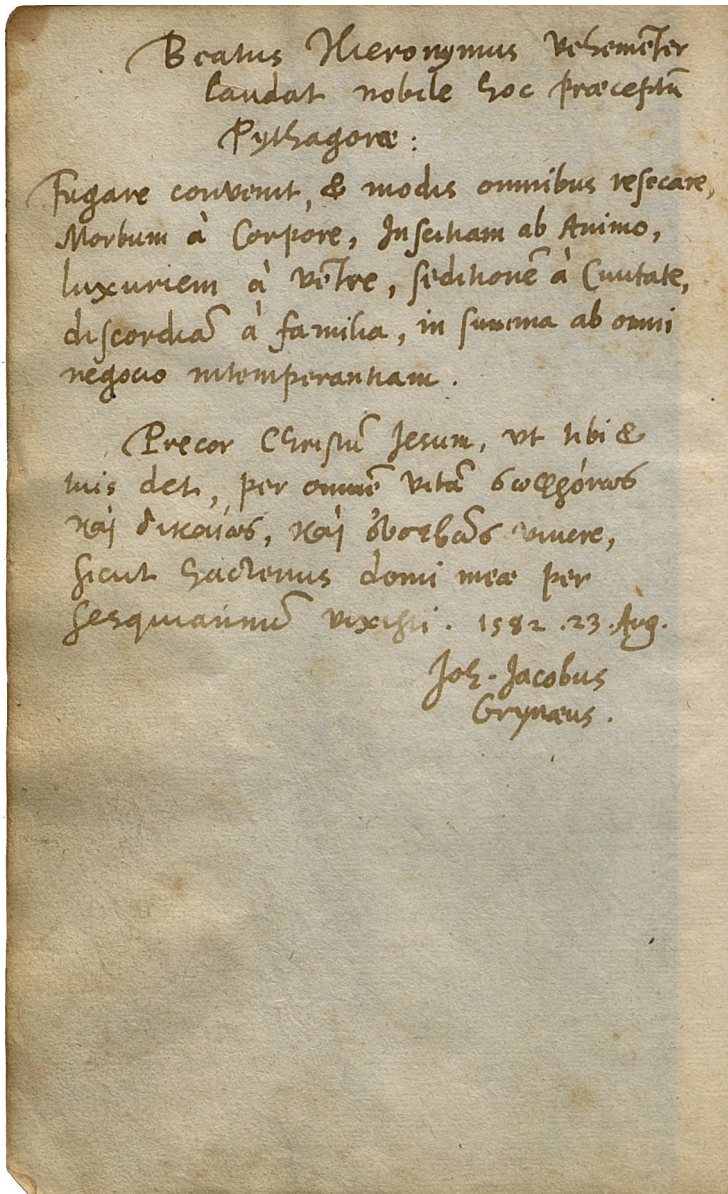 Beatus Hieronymus vehemēter
laudat nobile hoc præceptū
Pythagoræ:
Fugare convenit, & modis omnibus resecare,
Morbum à Corpore, Inscitiam ab Animo,
luxuriem à vētre, seditionē à Civitate,
discordiā à familia, in summa ab omni
negocio intemperantiam.
Precor Christū Jesum, ut tibi &
tuis det, per omnē vitā σωφρόνως
καὶ δικαίως, καὶ ἐυσεβῶς vivere,
sicut hactenus domi meæ per
sesquiannū vixisti. 1582. 23. Aug.
Joh. Jacobus
Grynæus.